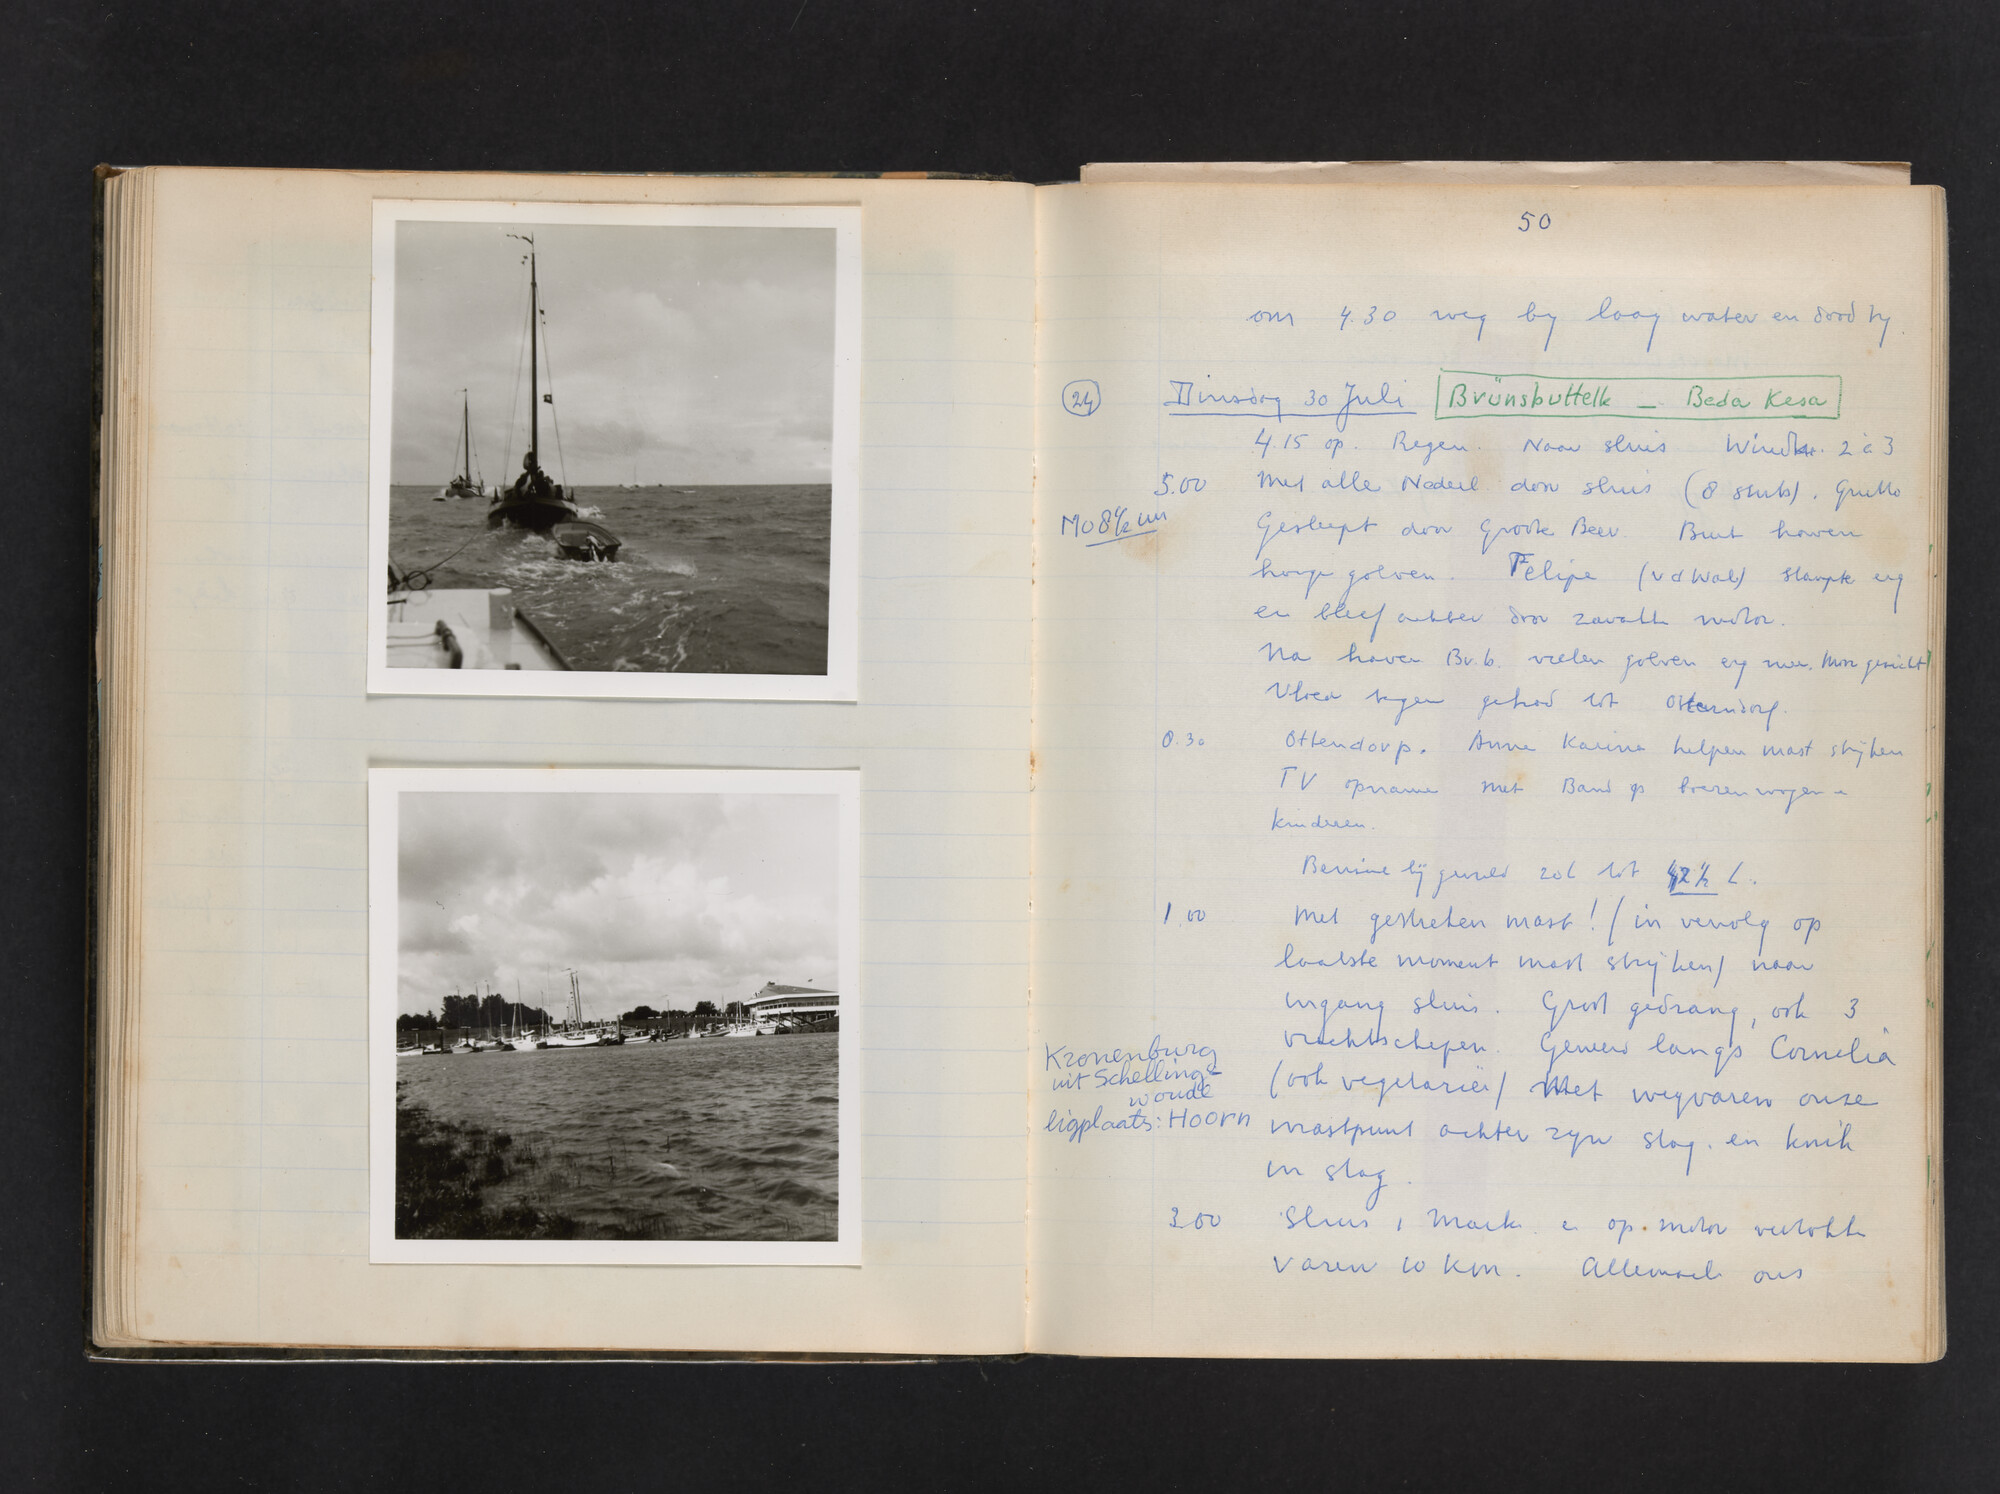 50
om 4.30 weg by laag water en dood ty.
24 Dinsdag 30 Juli Brünsbuttelk — Beda Kesa
4.15 op. Regen. Naar sluis Windkr. 2 à 3
5.00 Met alle Nederl. door sluis (8 stuks). Grutto
Mo 8½ uur
Gesleept door Groote Beer. Buit haven
hoge golven. Felipe (v d Wal) stampte erg
en bleef achter door zwakke motor.
Na haven Br.b. vielen golven erg mee.
Vloed tegen gehad tot Otterndorf.
8.30 Ottendorp. Anne Karina helpen mast strijken
TV opname met Band op boerenwagen
kinderen.
Benzine bijgevuld 20 L tot 42½ L.
1.00 Met gestreken mast! (in vervolg op
laatste moment mast strijken) naar
ingang sluis. Groot gedrang, ook 3
vrachtschepen. Gemeerd langs Cornelia
Kronenburg
uit Schelling-
woude
ligplaats: Hoorn
(ook vegetariër) Met wegvaren onze
mastpunt achter zyn stag. en knik
in stag.
3.00 Sluis 1 Mark. e op motor
varen 10 km. Allemaal ons